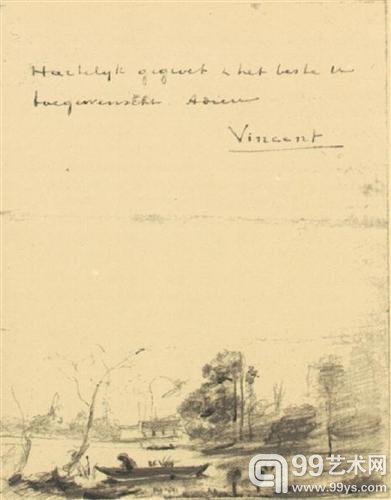 Hartelijk gegroet & het beste U
toegewenscht. Adieu
Vincent
99艺术网
www.99ys.com